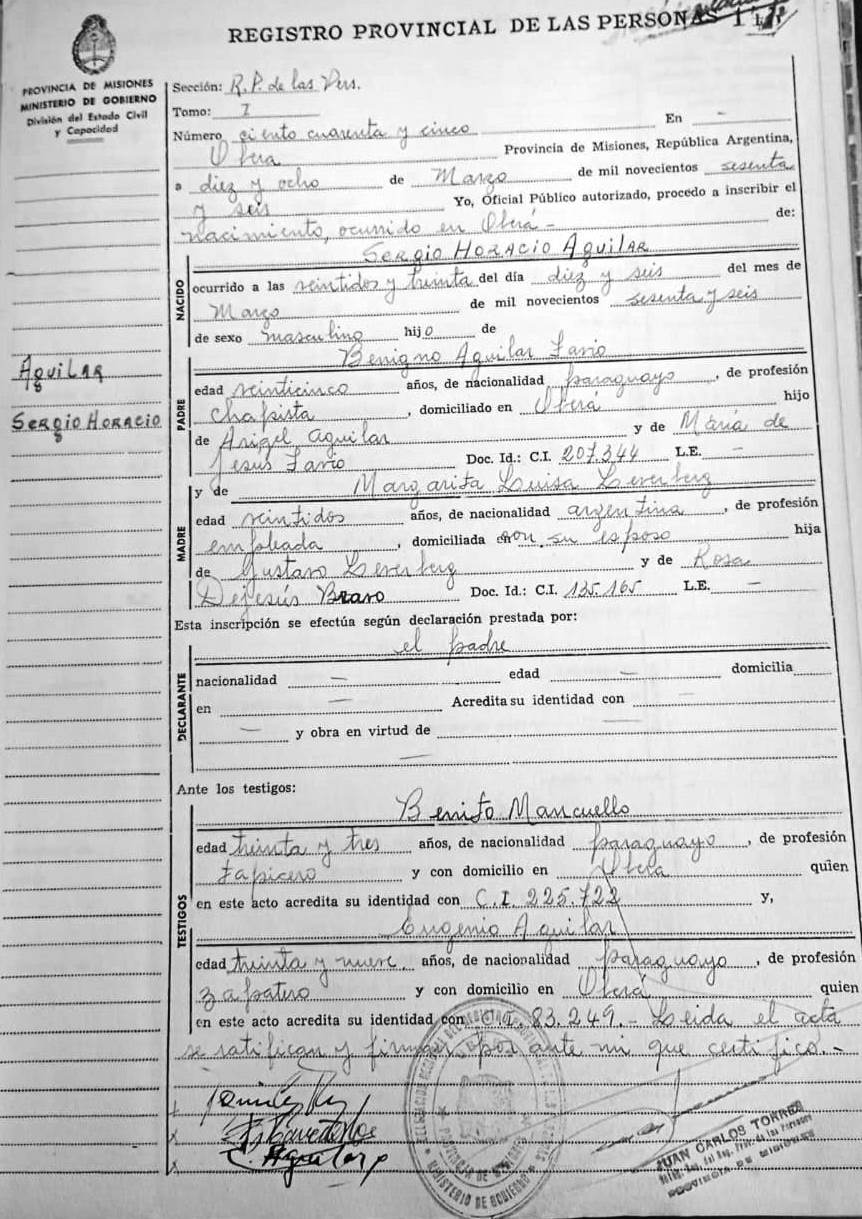 REGISTRO PROVINCIAL DE LAS PERSONAS
PROVINCIA DE MISIONES
MINISTERIO DE GOBIERNO
División del Estado Civil
y Capacidad
Sección: R.P. de las Pers.
Tomo: I
Número ciento cuarenta y cinco En -
Oberá Provincia de Misiones, República Argentina,
a diez y ocho de Marzo de mil novecientos sesenta
y seis Yo, Oficial Público autorizado, procedo a inscribir el
nacimiento, ocurrido en Oberá - de:
NACIDO
Sergio Horacio Aguilar
ocurrido a las veintidos y treinta del día diez y seis del mes de
Marzo de mil novecientos sesenta y seis
de sexo masculino hijo de
Aguilar
Sergio Horacio
PADRE
Benigno Aguilar Fario
edad veinticinco años, de nacionalidad paraguayo, de profesión
chapista, domiciliado en Oberá hijo
de Angel Aguilar y de María de
Jesus Fario Doc. Id.: C.I. 207.344 L.E. -
MADRE
y de Margarita Luisa Leverberg
edad veintidos años, de nacionalidad argentina, de profesión
empleada, domiciliada con su esposo hija
de Gustavo Leverberg y de Rosa
DeJesús Bravo Doc. Id.: C.I. 135.165 L.E. -
Esta inscripción se efectúa según declaración prestada por:
DECLARANTE
el padre
nacionalidad - edad - domicilia
en - Acredita su identidad con -
- y obra en virtud de -
-
Ante los testigos:
TESTIGOS
Benito Mancuello
edad treinta y tres años, de nacionalidad paraguayo, de profesión
tapicero y con domicilio en Oberá quien
en este acto acredita su identidad con C.I. 225.722 y,
Eugenio Aguilar
edad treinta y nueve años, de nacionalidad paraguayo, de profesión
zapatero y con domicilio en Oberá quien
en este acto acredita su identidad con C.I. 83.249.- Leida el acta
se ratifican y firman, por ante mi que certifico.-
E. Aguilar
PROVINCIA DE MISIONES
MINISTERIO DE GOBIERNO
JUAN CARLOS TORRES
PROVINCIA DE MISIONES